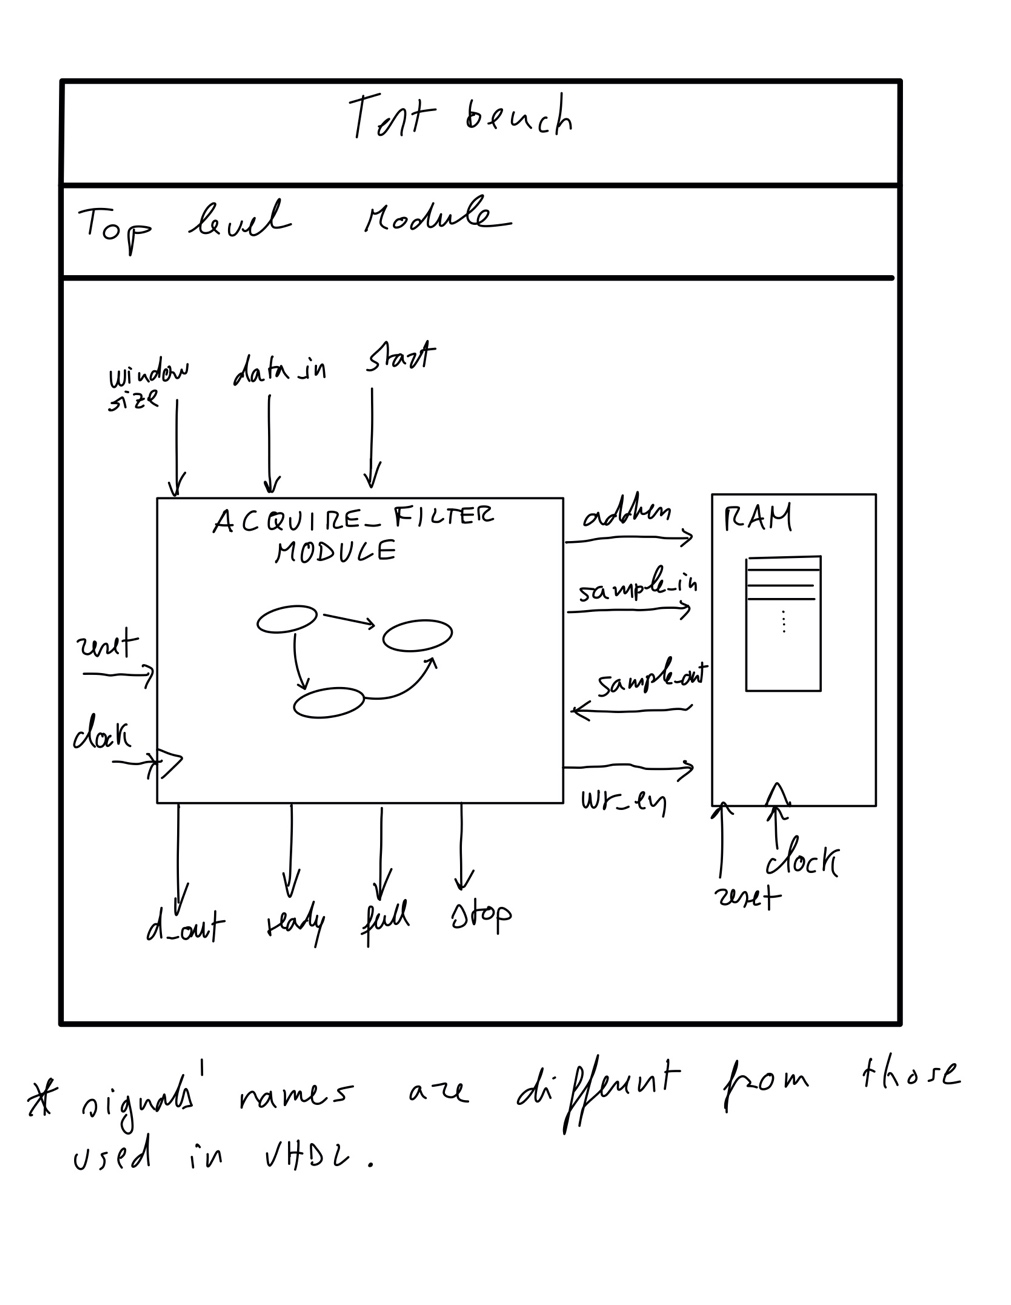 Test bench
Top level Module
window
size
data_in
start
ACQUIRE_FILTER
MODULE
address
RAM
sample_in
reset
sample_out
clock
wr_en
clock
reset
d_out
ready
full
stop
* signals' names are different from those
used in VHDL.